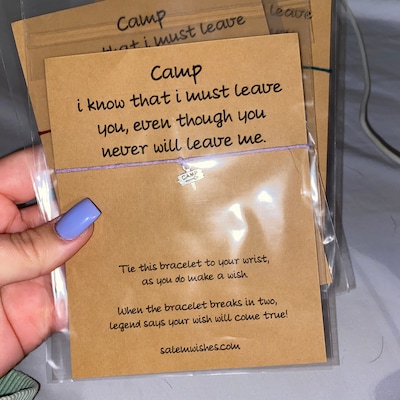 Camp
that i must leave
leave
Camp
i know that i must leave
you, even though you
never will leave me.
CAMP
Tie this bracelet to your wrist,
as you do make a wish
When the bracelet breaks in two,
legend says your wish will come true!
salemwishes.com